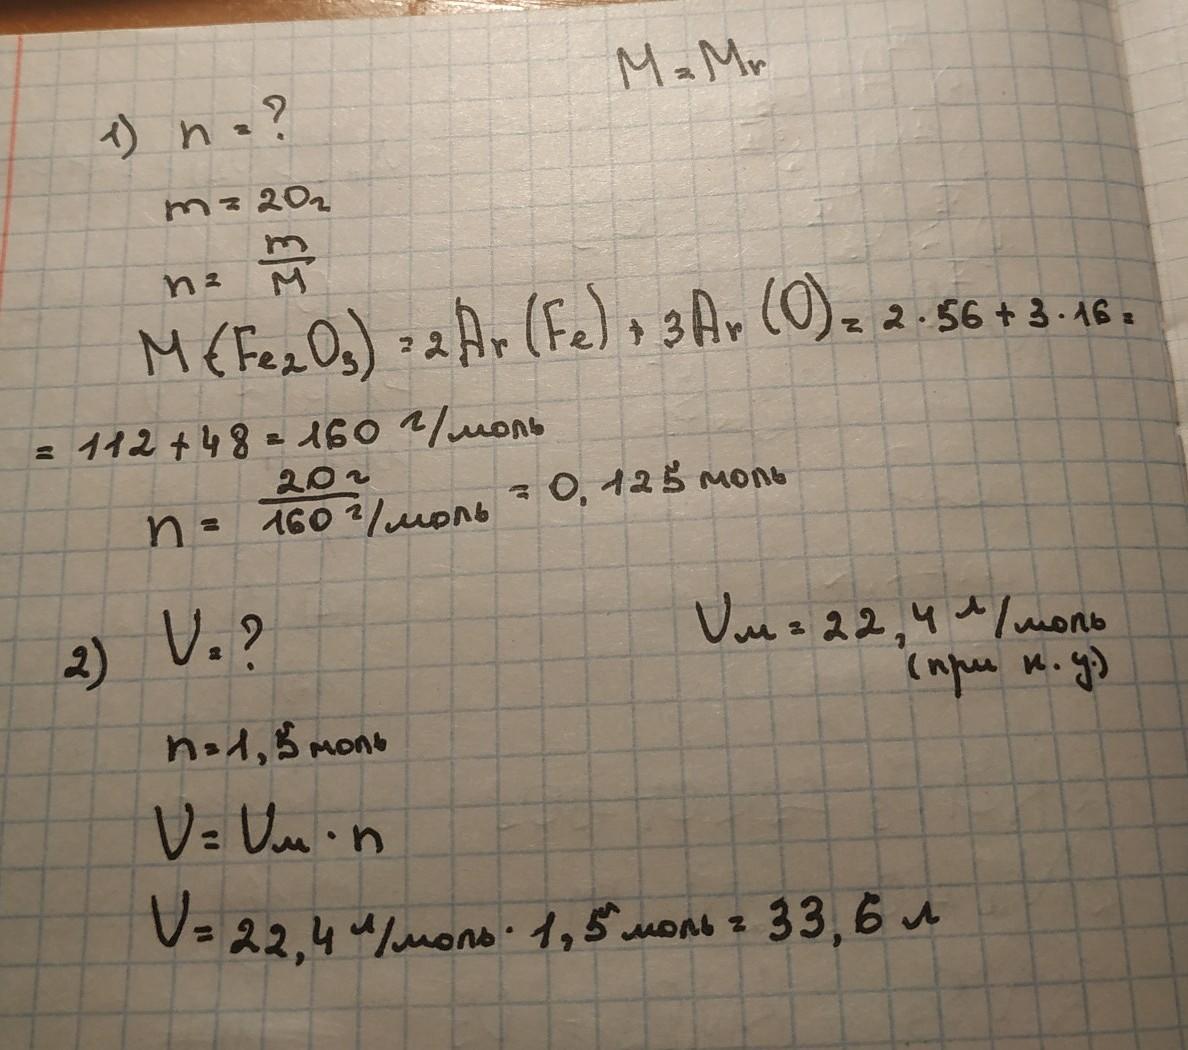 M = Mr
1) n = ?
m = 20г
n = m/M
M (Fe₂O₃) = 2Ar (Fe) + 3Ar (O) = 2 · 56 + 3 · 16 =
= 112 + 48 = 160 г/моль
n = 20г/160 г/моль = 0,125 моль
2) V = ?
Vм = 22,4 л/моль
(при н.у.)
n = 1,5 моль
V = Vм · n
V = 22,4 л/моль · 1,5 моль = 33,6 л